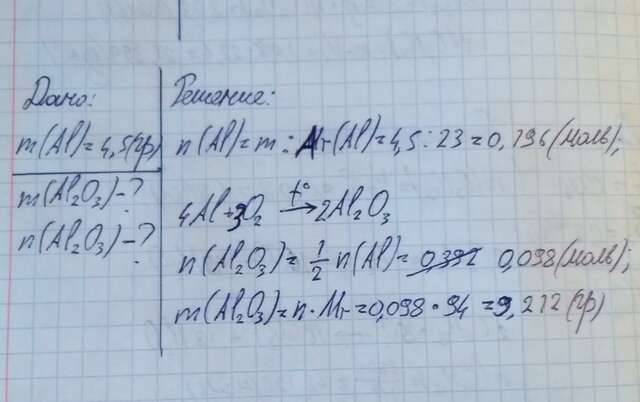 Дано:
m(Al)=4,5(гр)
m(Al₂O₃)-?
n(Al₂O₃)-?
Решение:
n(Al)=m:Mr(Al)=4,5:23=0,196(моль);
4Al+3O₂ t°→ 2Al₂O₃
n(Al₂O₃)=1/2 n(Al)= 0,392 0,098(моль);
m(Al₂O₃)=n·Mr=0,098·94=9,212(гр)